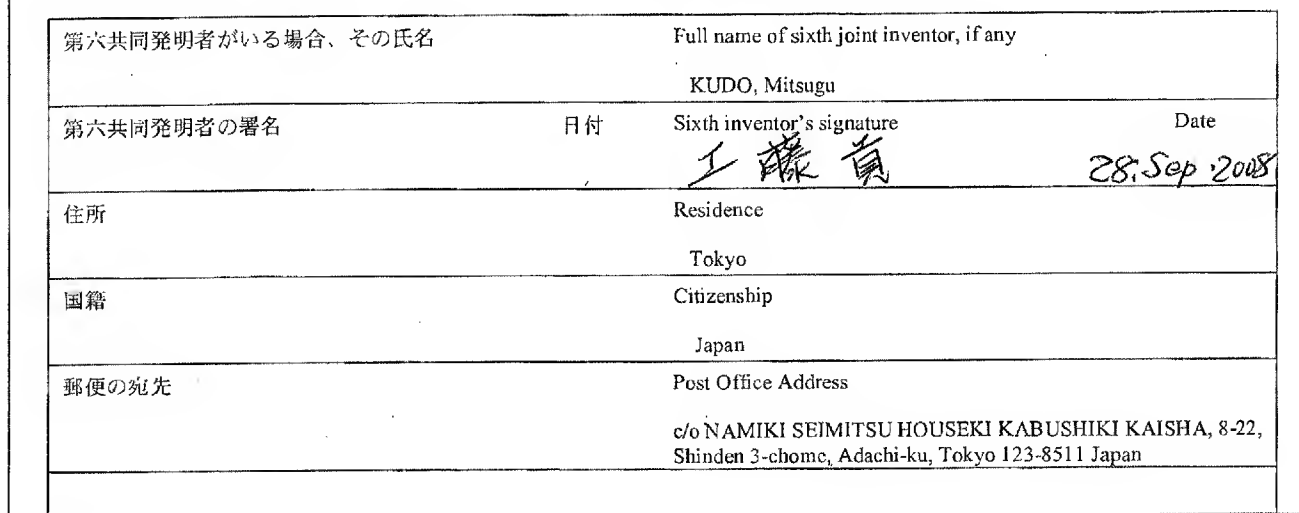 第六共同発明者がいる場合、その氏名 Full name of sixth joint inventor, if any
KUDO, Mitsugu
第六共同発明者の署名 日付 Sixth inventor's signature Date
工藤貢 28. Sep. 2008
住所 Residence
Tokyo
国籍 Citizenship
Japan
郵便の宛先 Post Office Address
c/o NAMIKI SEIMITSU HOUSEKI KABUSHIKI KAISHA, 8-22,
Shinden 3-chome, Adachi-ku, Tokyo 123-8511 Japan